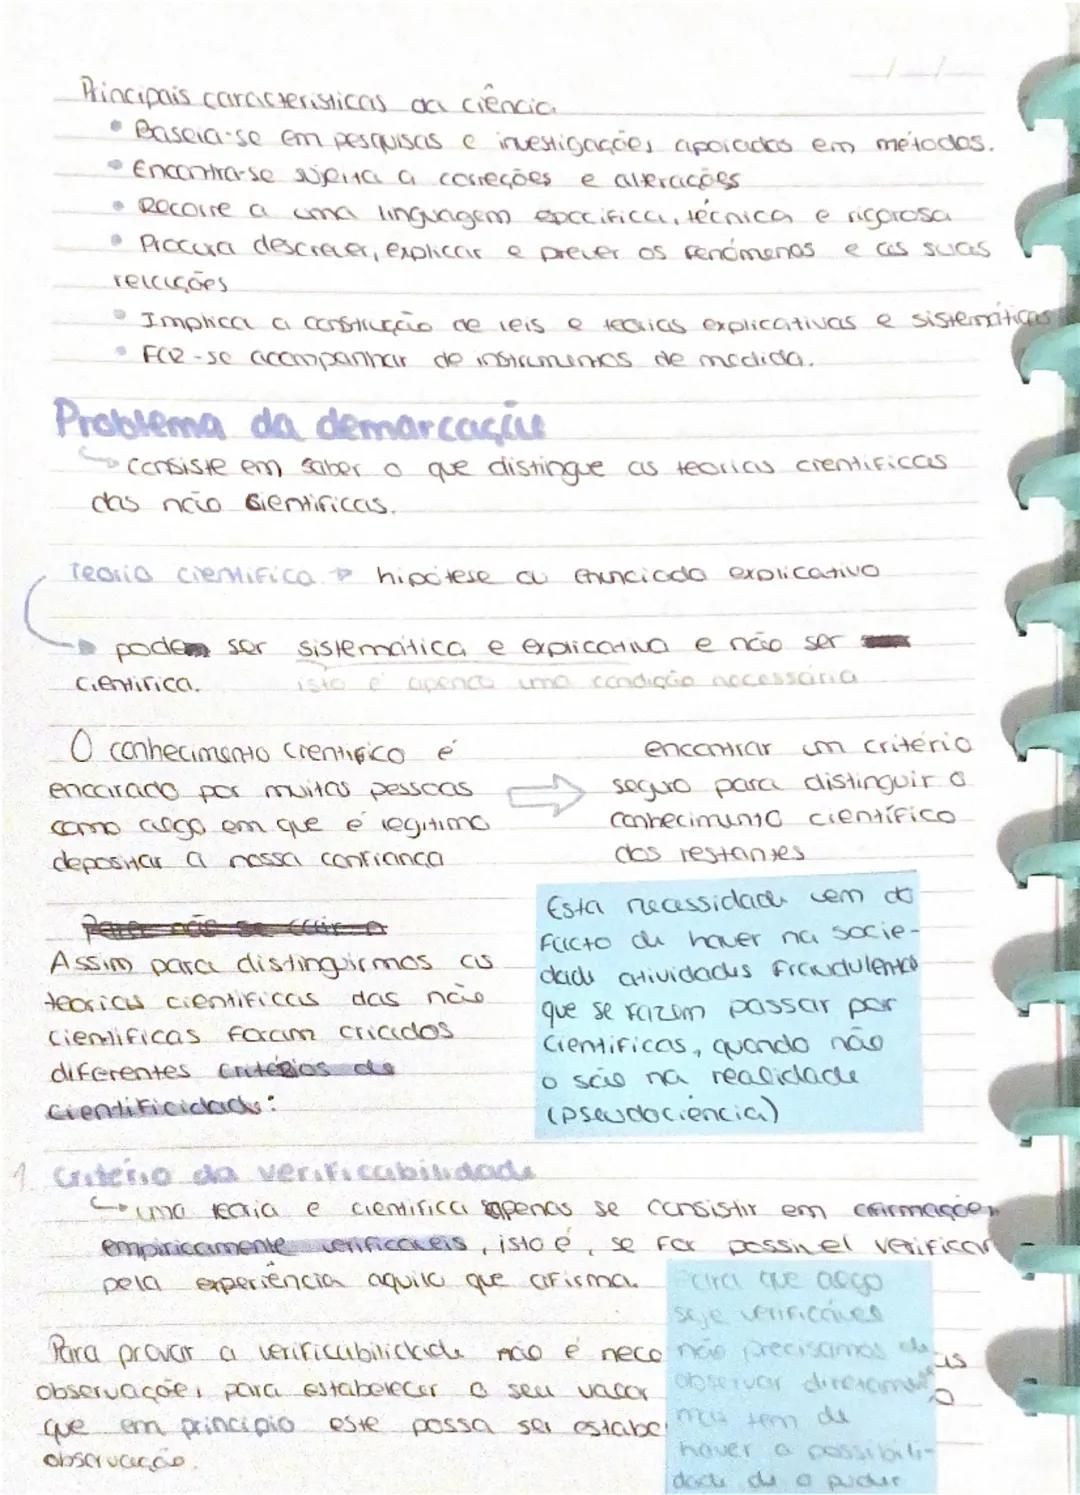 Principais caracteristicas da ciência
• Baseia-se em pesquisas e investigações apoiadas em métodos.
• Encontra-se sujeita a correções e alterações
• Recorre a uma linguagem especifica, técnica e rigorosa
• Procura descrever, explicar e prever os fenómenos e as suas
relações
• Implica a construção de leis e teorias explicativas e sistemáticas
• Faz-se acompanhar de instrumentos de medida.
Problema da demarcação
↳ consiste em saber o que distingue as teorias cientificas
das não cientificas.
Teoria cientifica → hipótese ou enunciado explicativo
→ podem ser sistemática e explicativa e não ser
cientifica. isto é apenas uma condição necessária
O conhecimento cientifico é
encarado por muitas pessoas
como algo em que é legitimo
depositar a nossa confiança
⇨
encontrar um critério
seguro para distinguir o
conhecimento científico
dos restantes
Para não se cair a
Assim para distinguirmos as
teorias cientificas das não
cientificas foram criados
diferentes critérios de
cientificidade:
Esta necessidade vem do
facto de haver na socie-
dade atividades fraudulentas
que se fazem passar por
cientificas, quando não
o são na realidade
(pseudociência)
1. Critério da verificabilidade
↳ uma teoria e cientifica apenas se consistir em afirmações
empiricamente verificaveis, isto é, se for possivel verificar
pela experiência aquilo que afirma.
Para provar a verificabilidade não é nece as
observações para estabelecer o seu valor o
que em principio este possa ser estabe
observação.
Para que algo
seje verificável
não precisamos de
observar diretamente
mas tem de
haver a possibili-
dade de o puder